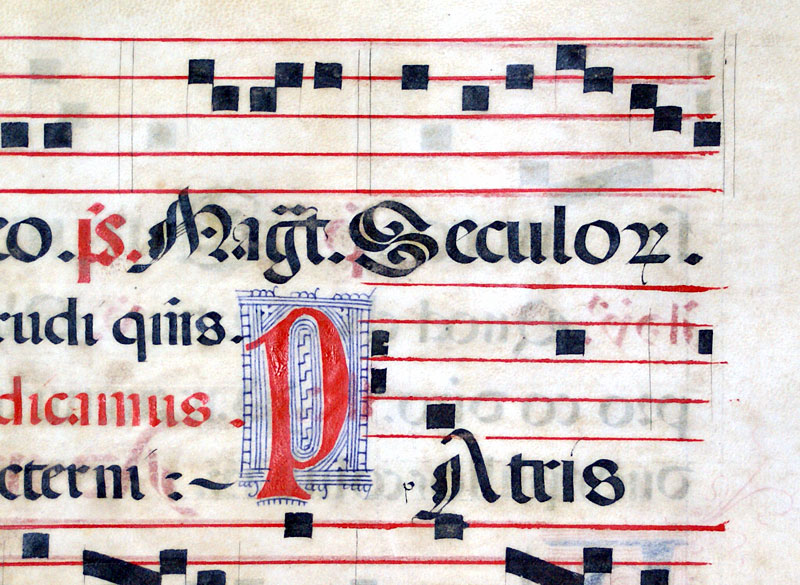 co. ps. Magt. Seculoꝝ.
rudi qiiis.
dicamus.
cterni :~
P Atris